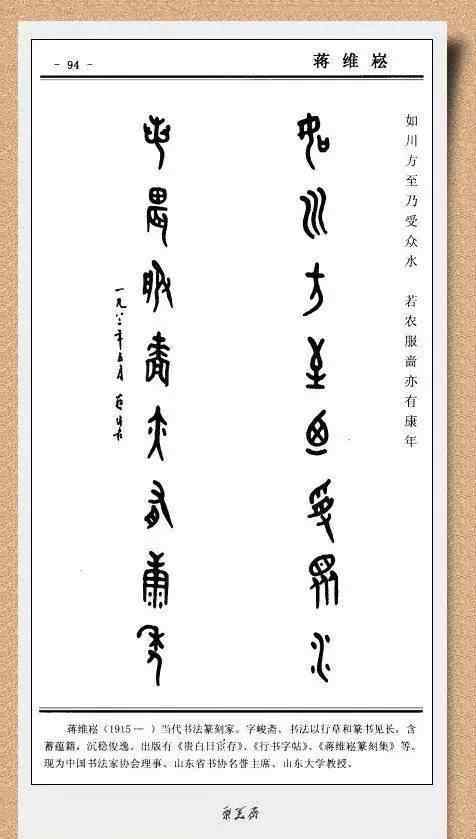 - 94 -
蒋维崧
如川方至乃受众水 若农服啬亦有康年
如川方至乃受众水
若农服啬亦有康年
蒋维崧(1915— )当代书法篆刻家。字峻斋。书法以行草和篆书见长,含
蓄蕴籍,沉稳俊逸。出版有《
》、《行书字帖》、《蒋维崧篆刻集》等。
现为中国书法家协会理事、山东省书协名誉主席、山东大学教授。